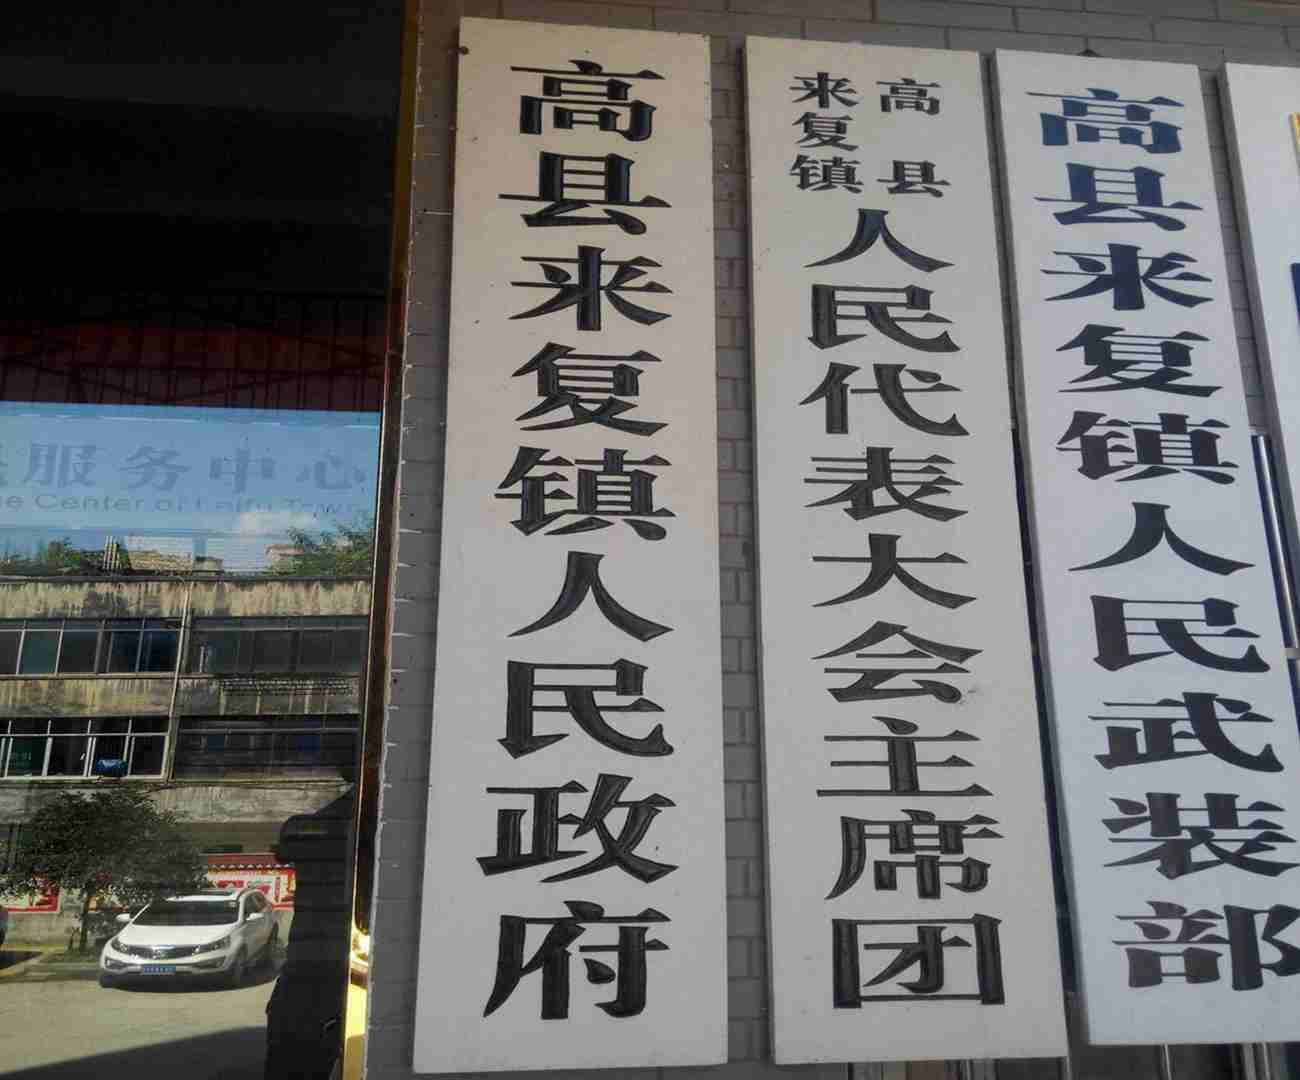 高县来复镇人民政府
高县
来复镇
人民代表大会主席团
高县来复镇人民武装部
服务中心
Center of Laifu Town